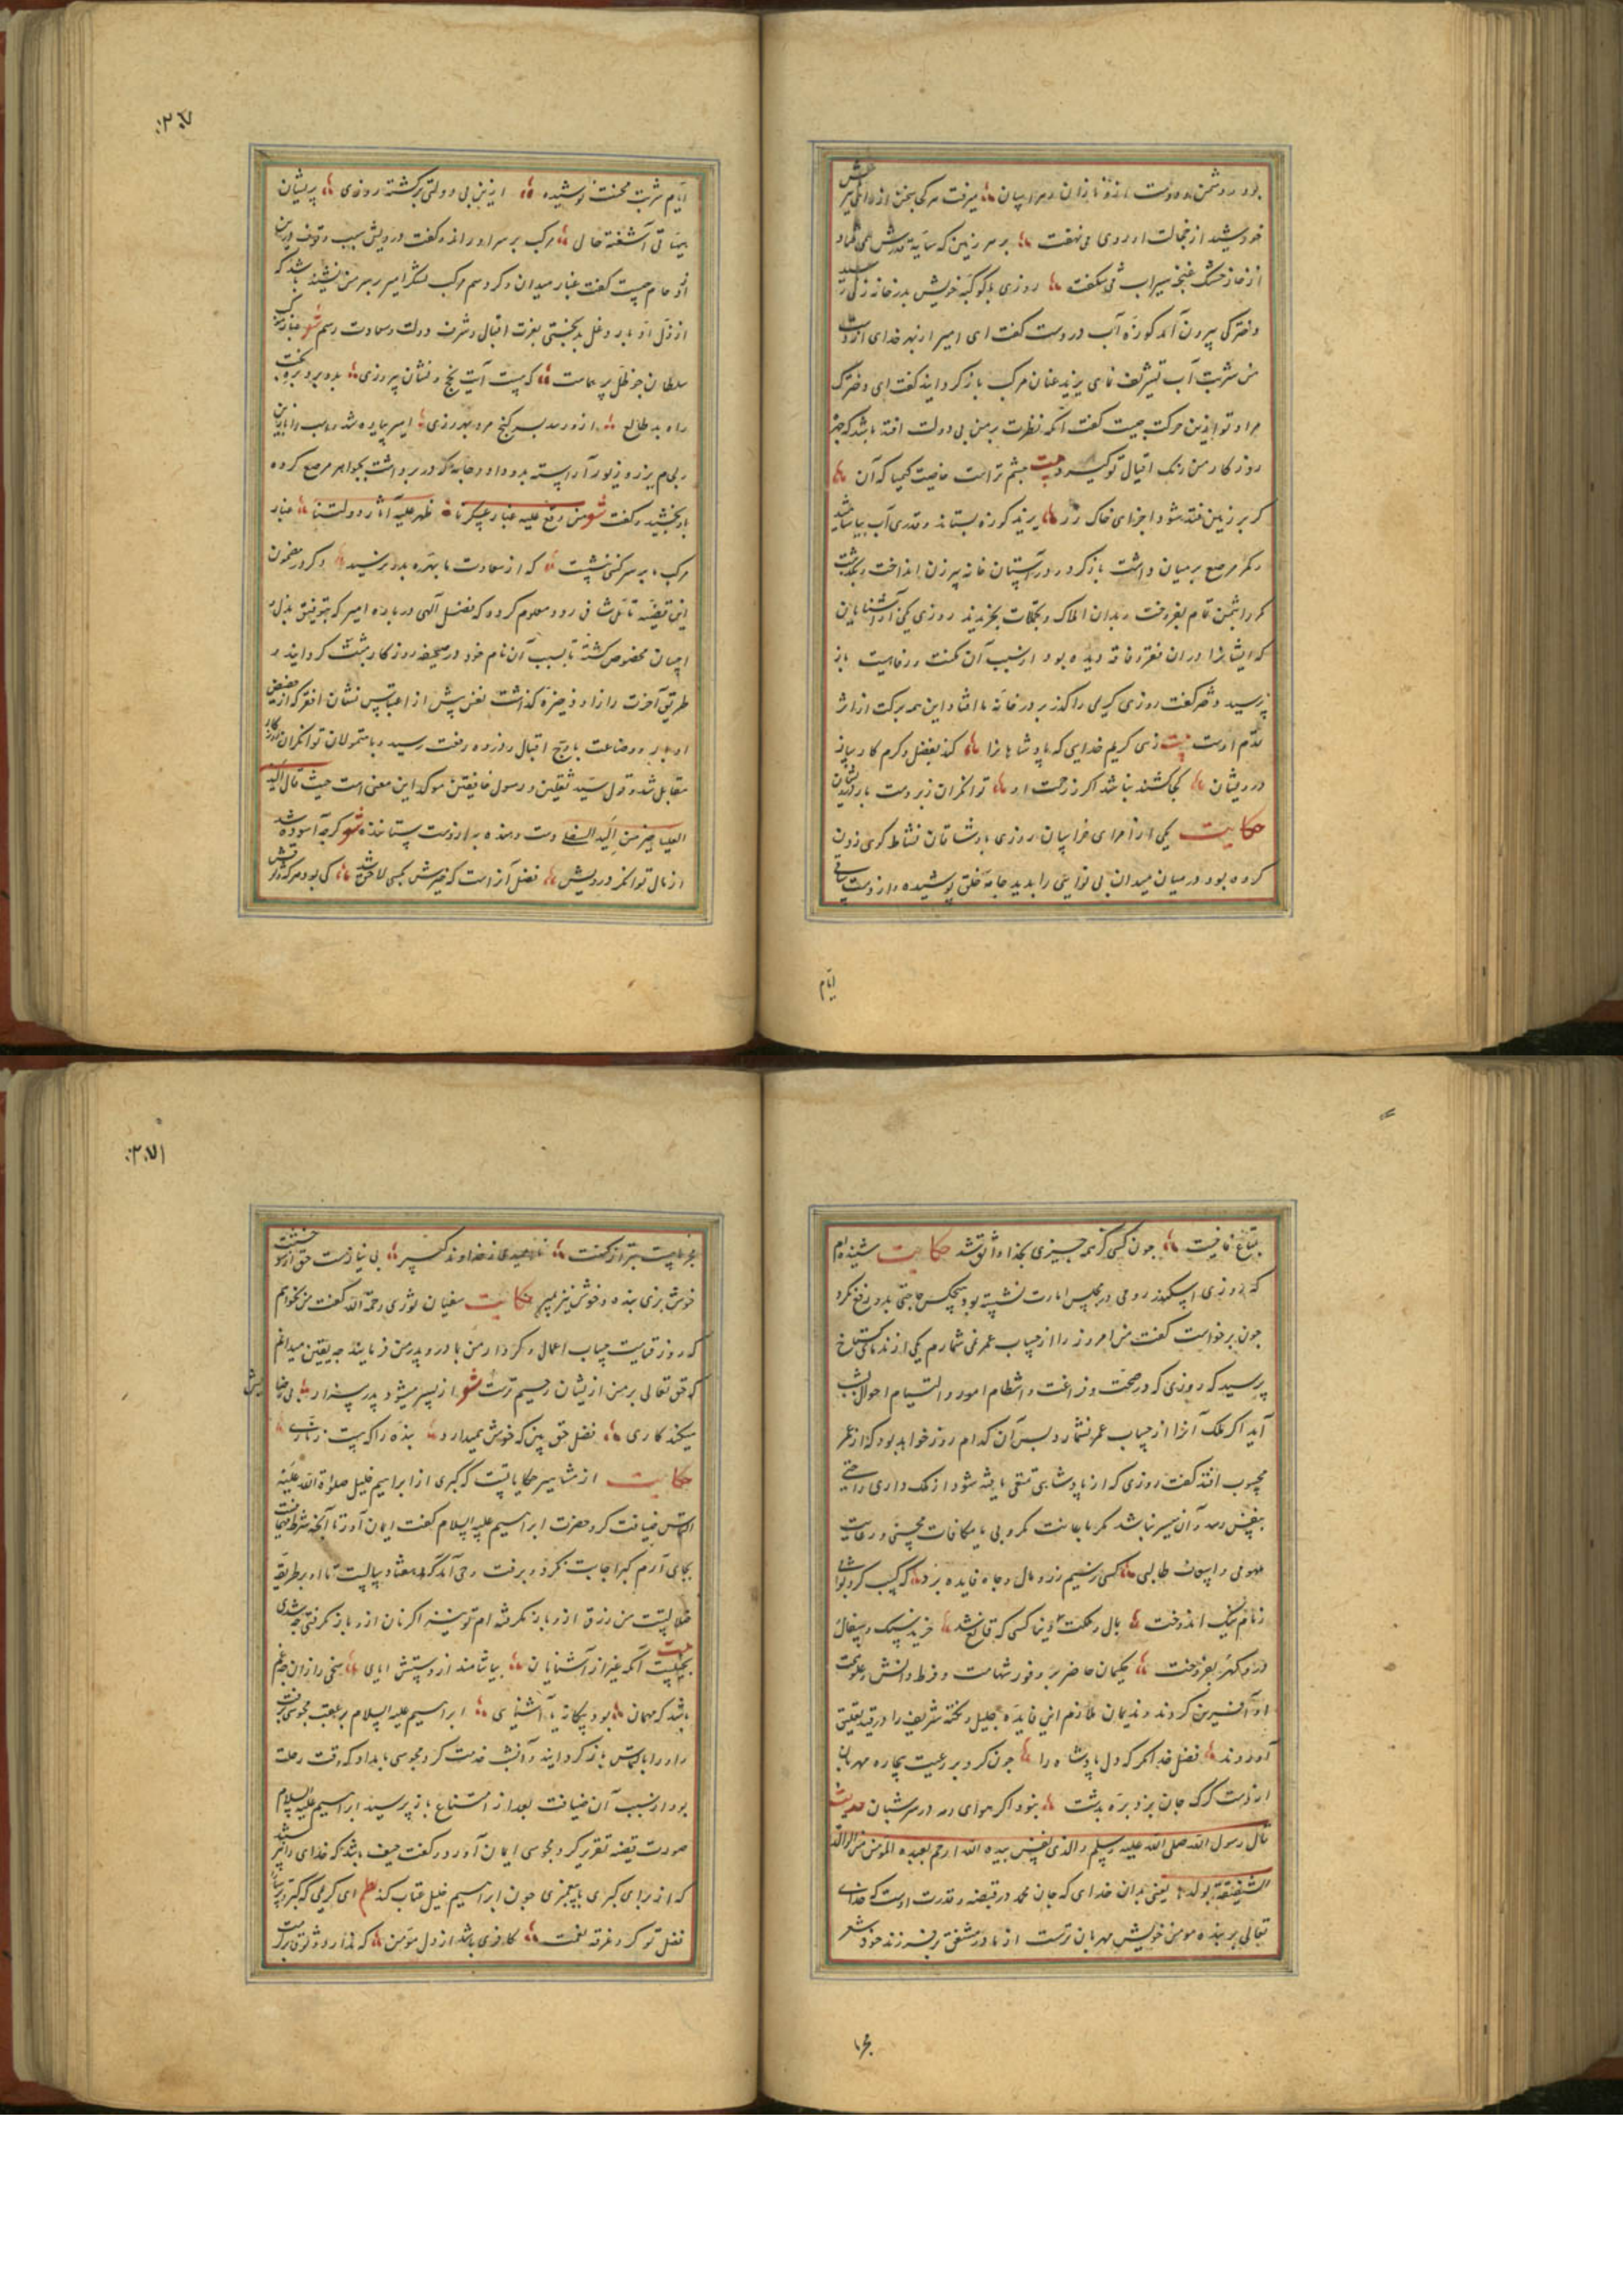 خورشید از خجالت او روی می نهفت بر سر زمین که سایه
از خار خشک غنچه سیراب می شکفت روزی با کوکبه خویش بدر خانه زنی رسید
دخترکی بیرون آمد کوزه آب در دست گفت ای امیر از بهر خدای از دست
من شربت آب تشریف فرمای یزید عنان مرکب باز کردانید گفت ای دخترک
مراد تو ازین حرکت چیست گفت آنکه نظرت بر من بی دولت افتد باشد که
روزکار من رنک اقبال تو گیرد بیت چشم تراست خاصیت کیمیا که آن
کر بر زمین فتد شود اجزای خاک زر یزید کوزه بستاند و قدری آب بیاشامید
و کمر مرصع بر میان داشت باز کرد و در آستان خانه پیرزن انداخت و بگذشت
کمر را بثمن تمام بفروخت و بدان املاک و تجملات بخریدند روزی یکی از آشنایان
که ایشانرا در ان فقر و فاقه دیده بود از سبب آن مکنت و رفاهیت باز
پرسید دختر گفت روزی کریمی را گذر بر در خانه ما افتاد این همه برکت از اثر
قدم اوست بیت زهی کریم خدایی که پادشاهانرا کند بفضل و کرم کارساز
درویشان کجا کشند نباشد اگر زرحمت او توانگران زبردست بار درویشان
حکایت یکی از امرای خراسان روزی با دوستان نشاط گوی زدن
کرده بود در میان میدان بی نوایی را بدید جامه خلق پوشیده و از دست ساقی
ایام
۲۷۰
ایام شربت محنت نوشیده ازین بی دولتی برکشته روزی پریشان
آشفته حال مرکب بر سر او راند و گفت درویش سبب وقوف درین
ازدحام چیست گفت غبار میدان و گرد سم مرکب لشکر امیر بر سر من نشیند باشد که
از ذل ادبار و غل بدبختی بعزت اقبال و شرف دولت و سعادت رسم شعر غبار مرکب
سلطان چو ظل پر هماست که هست آیت فتح و نشان پیروزی
راه بد طالع ازو رسد بسر گنج مرد بهروزی امیر پیاده شد و اسب را با زین
و لجام بزر و زیور آراسته بدو داد و جامه که در بر داشت بجواهر مرصع کرده
بدو بخشید و گفت شعر من وقع علیه غبار عسکرنا ظهر علیه آثار دولتنا غبار
مرکب ما بر سر کسی ننشست که از سعادت ما بهره بدو نرسید و کر در مضمون
این قضیه تامل شافی رود معلوم کردد که فضل الهی درباره امیر که بتوفیق بذل و
احسان مخصوص کشته تا بسبب آن نام خود در صحیفه روزکار مثبت کردانید و
طریق آخرت را زاد و ذخیره گذاشت نفس پیش از اعباتس نشان افتر که از حضیض
ادبار و وضاعت باوج اقبال و ذروه رفعت رسید و با متمولان توانکران
مقابل شد و قول سید ثقلین و رسول خافقین موکد این معنی است حیث قال الید
العلیا خیر من الید السفلی دست دهنده به از دست ستاننده شعر گرچه آسوده شد
از مال توانگر درویش فضل آنراست که خیرش بکسی لاحق شد
بتاع عاقبت چون کسی کز همه چیزی بخدا واثق شد حکایت شنیده ام
که روزی اسکندر رومی در مجلس امارت نشسته بود و هیچکس حاجتی بدو رفع نکرد
چون برخواست گفت من امروز را از حساب عمر نمی شمارم یکی از ندما گستاخ
پرسید که روزی که در صحت و فراغت و انتظام امور و التیام احوال بشب
آید اکر ملک آنرا از حساب عمر نشمارد پس آن کدام روز خواهد بود که از عمر
محسوب افتد گفت روزی که از پادشاهی تمتعی یافته شود از ملک داری راحتی
بنفس رسد و آن میسر نباشد مگر باعانت مکروبی یا مکافات محسنی و رعایت
ملهوفی و اسعاف طالبی کسی ز سیم و زر و مال و جاه فایده برد که کسب کرد ثوابی
و نام نیک اندوخت بمال و مملکت دنیا کسی که قانع شد خرید سنک و سفال
و در و گهر بفروخت حکیمان حاضر بر وفور شهامت و فرط دانش و علو همت
او آفرین کردند و ندیمان ملازم این فایده جلیل و نکته شریف را در قید تعلیق
آوردند فضل خدا نکر که دل پادشاه را چون کرد بر رعیت بیچاره مهربان
از دست گرگ جان نبرد بره بدشت نبود اگر هوای رمه در سر شبان حدیث
قال رسول الله صلی الله علیه و سلم والذی نفسی بیده الله ارحم بعبده المؤمن من الوالدة
الشفیقة بولدها یعنی بدان خدای که جان محمد در قبضه و قدرت اوست که خدای
تعالی بر بنده مومن خویش مهربان ترست از مادر مشفق بر فرزند خود شعر
۲۷۱
خوش بزی بنده و خوش نیز بمیر حکایت سفیان ثوری رحمه الله گفت من نخواهم
که روز قیامت حساب اعمال و کردار من با مادر و پدر من فرمایند چه یقین میدانم
که حق تعالی بر من از ایشان رحیم ترست شعر از پسر میشود پدر بیزار
میکند کاری فضل حق بین که خوش همیدارد بنده را که بست زناری
حکایت از مشاهیر حکایاتست که گبری از ابراهیم خلیل صلوات الله علیه
التماس ضیافت کرد حضرت ابراهیم علیه السلام گفت ایمان آور تا آنچه شرط ضیافت
بجای آرم گبر اجابت نکرد و برفت وحی آمد که هفتاد سالست تا او بر طریقه
ضلالتست من رزق ازو باز نگرفته ام تو یک شبه اگر نان ازو باز نگرفتی چه شدی
باشد که مهمان بود بیگانه یا آشنای ابراهیم علیه السلام بر عقب مجوسی برفت
و او را بالتماس باز کردانید و آنشب خدمت کرد مجوسی بامداد که وقت رحلت
بود از سبب آن ضیافت بعد از امتناع باز پرسید ابراهیم علیه السلام
صورت قصه تقریر کرد مجوسی ایمان آورد و گفت حیف باشد که خدای را نپرستند
که از برای گبری با پیغمبری چون ابراهیم خلیل عتاب کند
فضل تو کرد غرقه نعمت کافری باشد از دل مؤمن